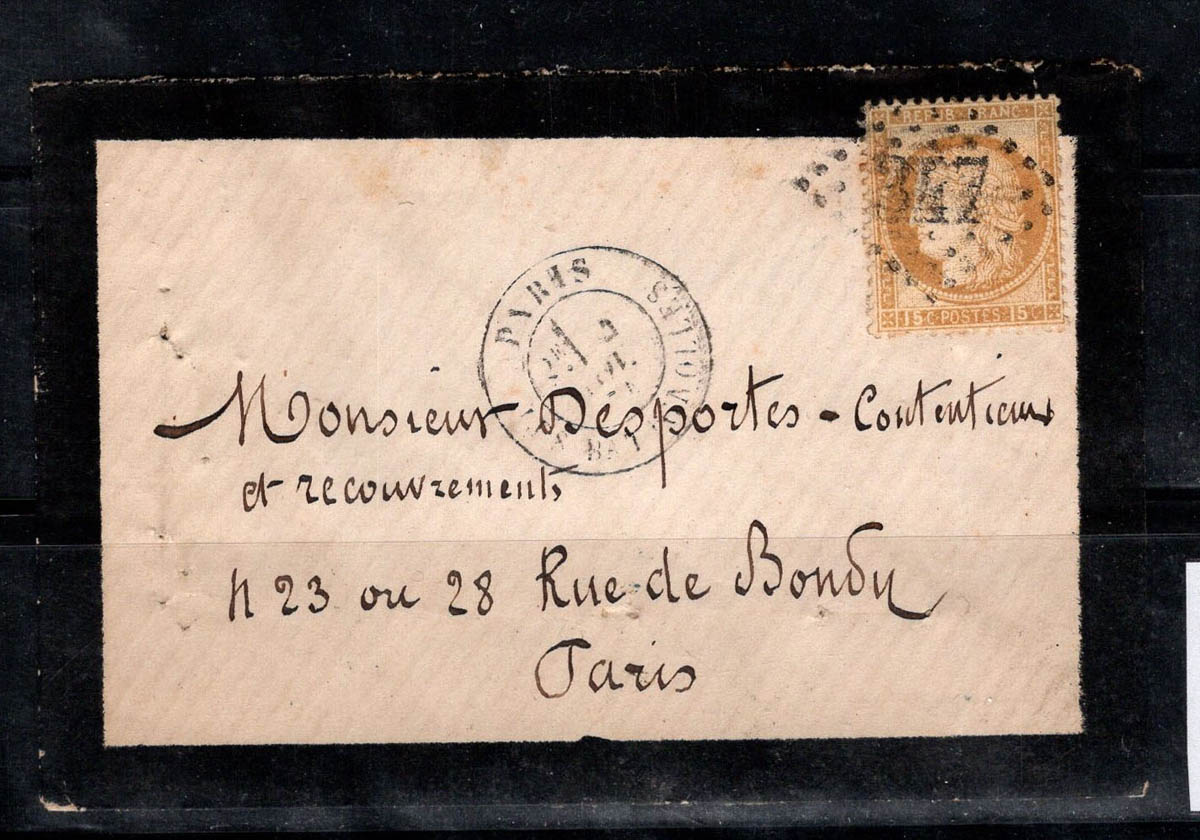 REPUB. FRANC.
15 C. POSTES 15 C.
PARIS
BATIGNOLLES
Monsieur Desportes - Contentieux
et recouvrements
n 23 ou 28 Rue de Bondy
Paris